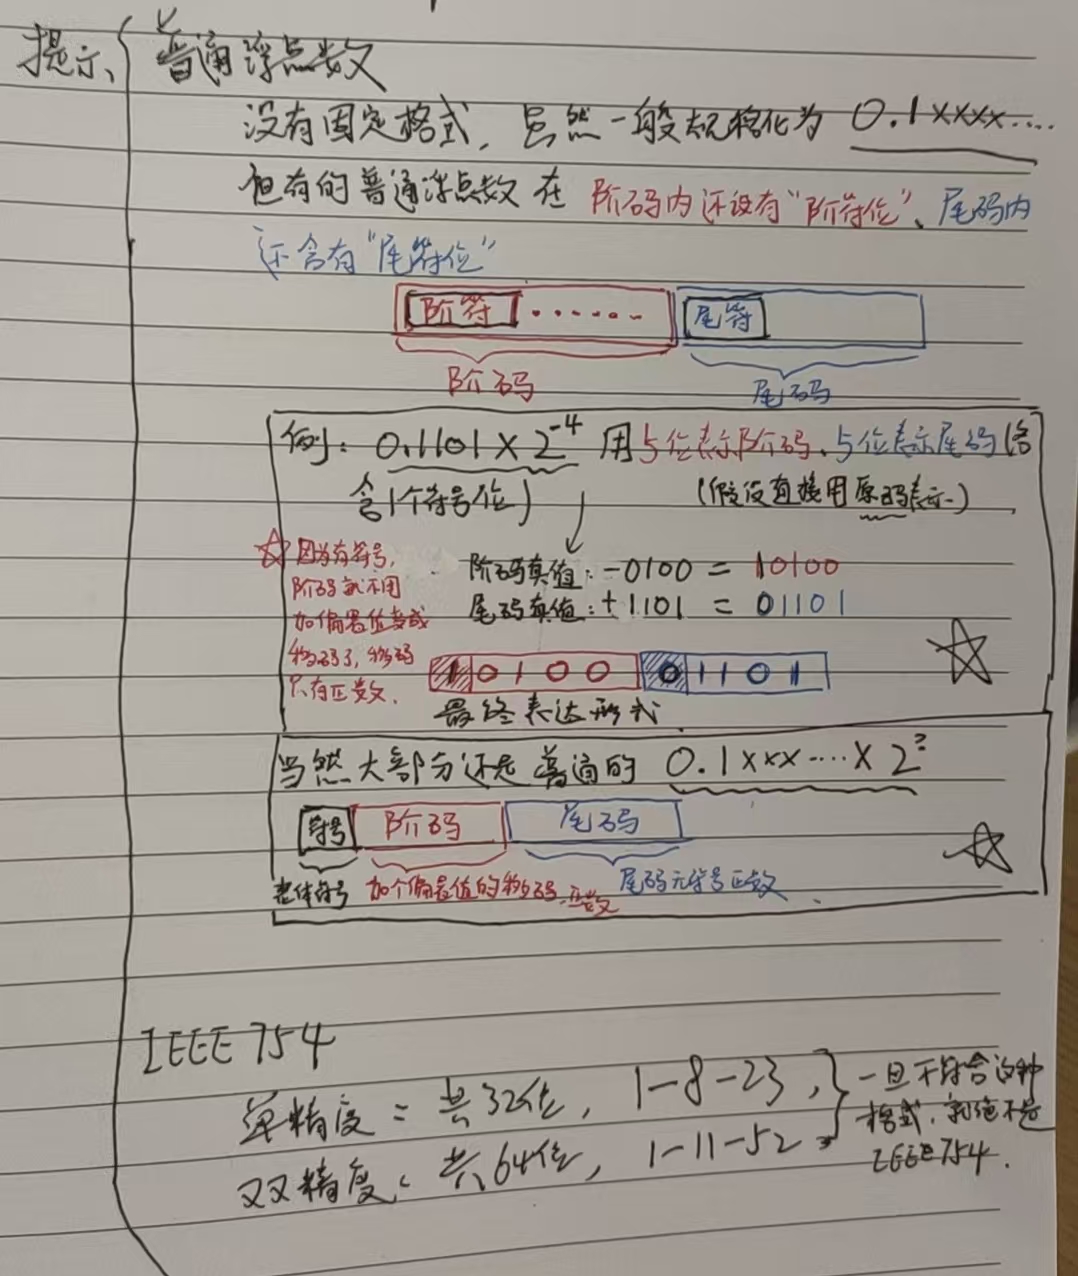 提示、 普通浮点数
没有固定格式，虽然一般规格化为 0.1xxxx....
但有的普通浮点数在 阶码内还设有“阶符位”、尾码内
还含有“尾符位”
阶符 ...... 尾符
阶码 尾码
例：0.1101×2⁻⁴ 用5位表示阶码、5位表示尾码（各
含1个符号位） （假设直接用原码表示）
☆因为有符号，
阶码就不用
加偏置值变成
移码了，移码
只有正数．
阶码真值：-0100 = 10100
尾码真值：+1101 = 01101
1 0 1 0 0 0 1 1 0 1
最终表达形式
当然大部分还是普通的 0.1xxx....×2^?
符号 阶码 尾码
整体符号 加个偏置值的移码，正数 尾码无符号正数
IEEE 754
单精度：共32位，1-8-23，
双精度：共64位，1-11-52
一旦不符合这种
格式，就绝不是
IEEE754．